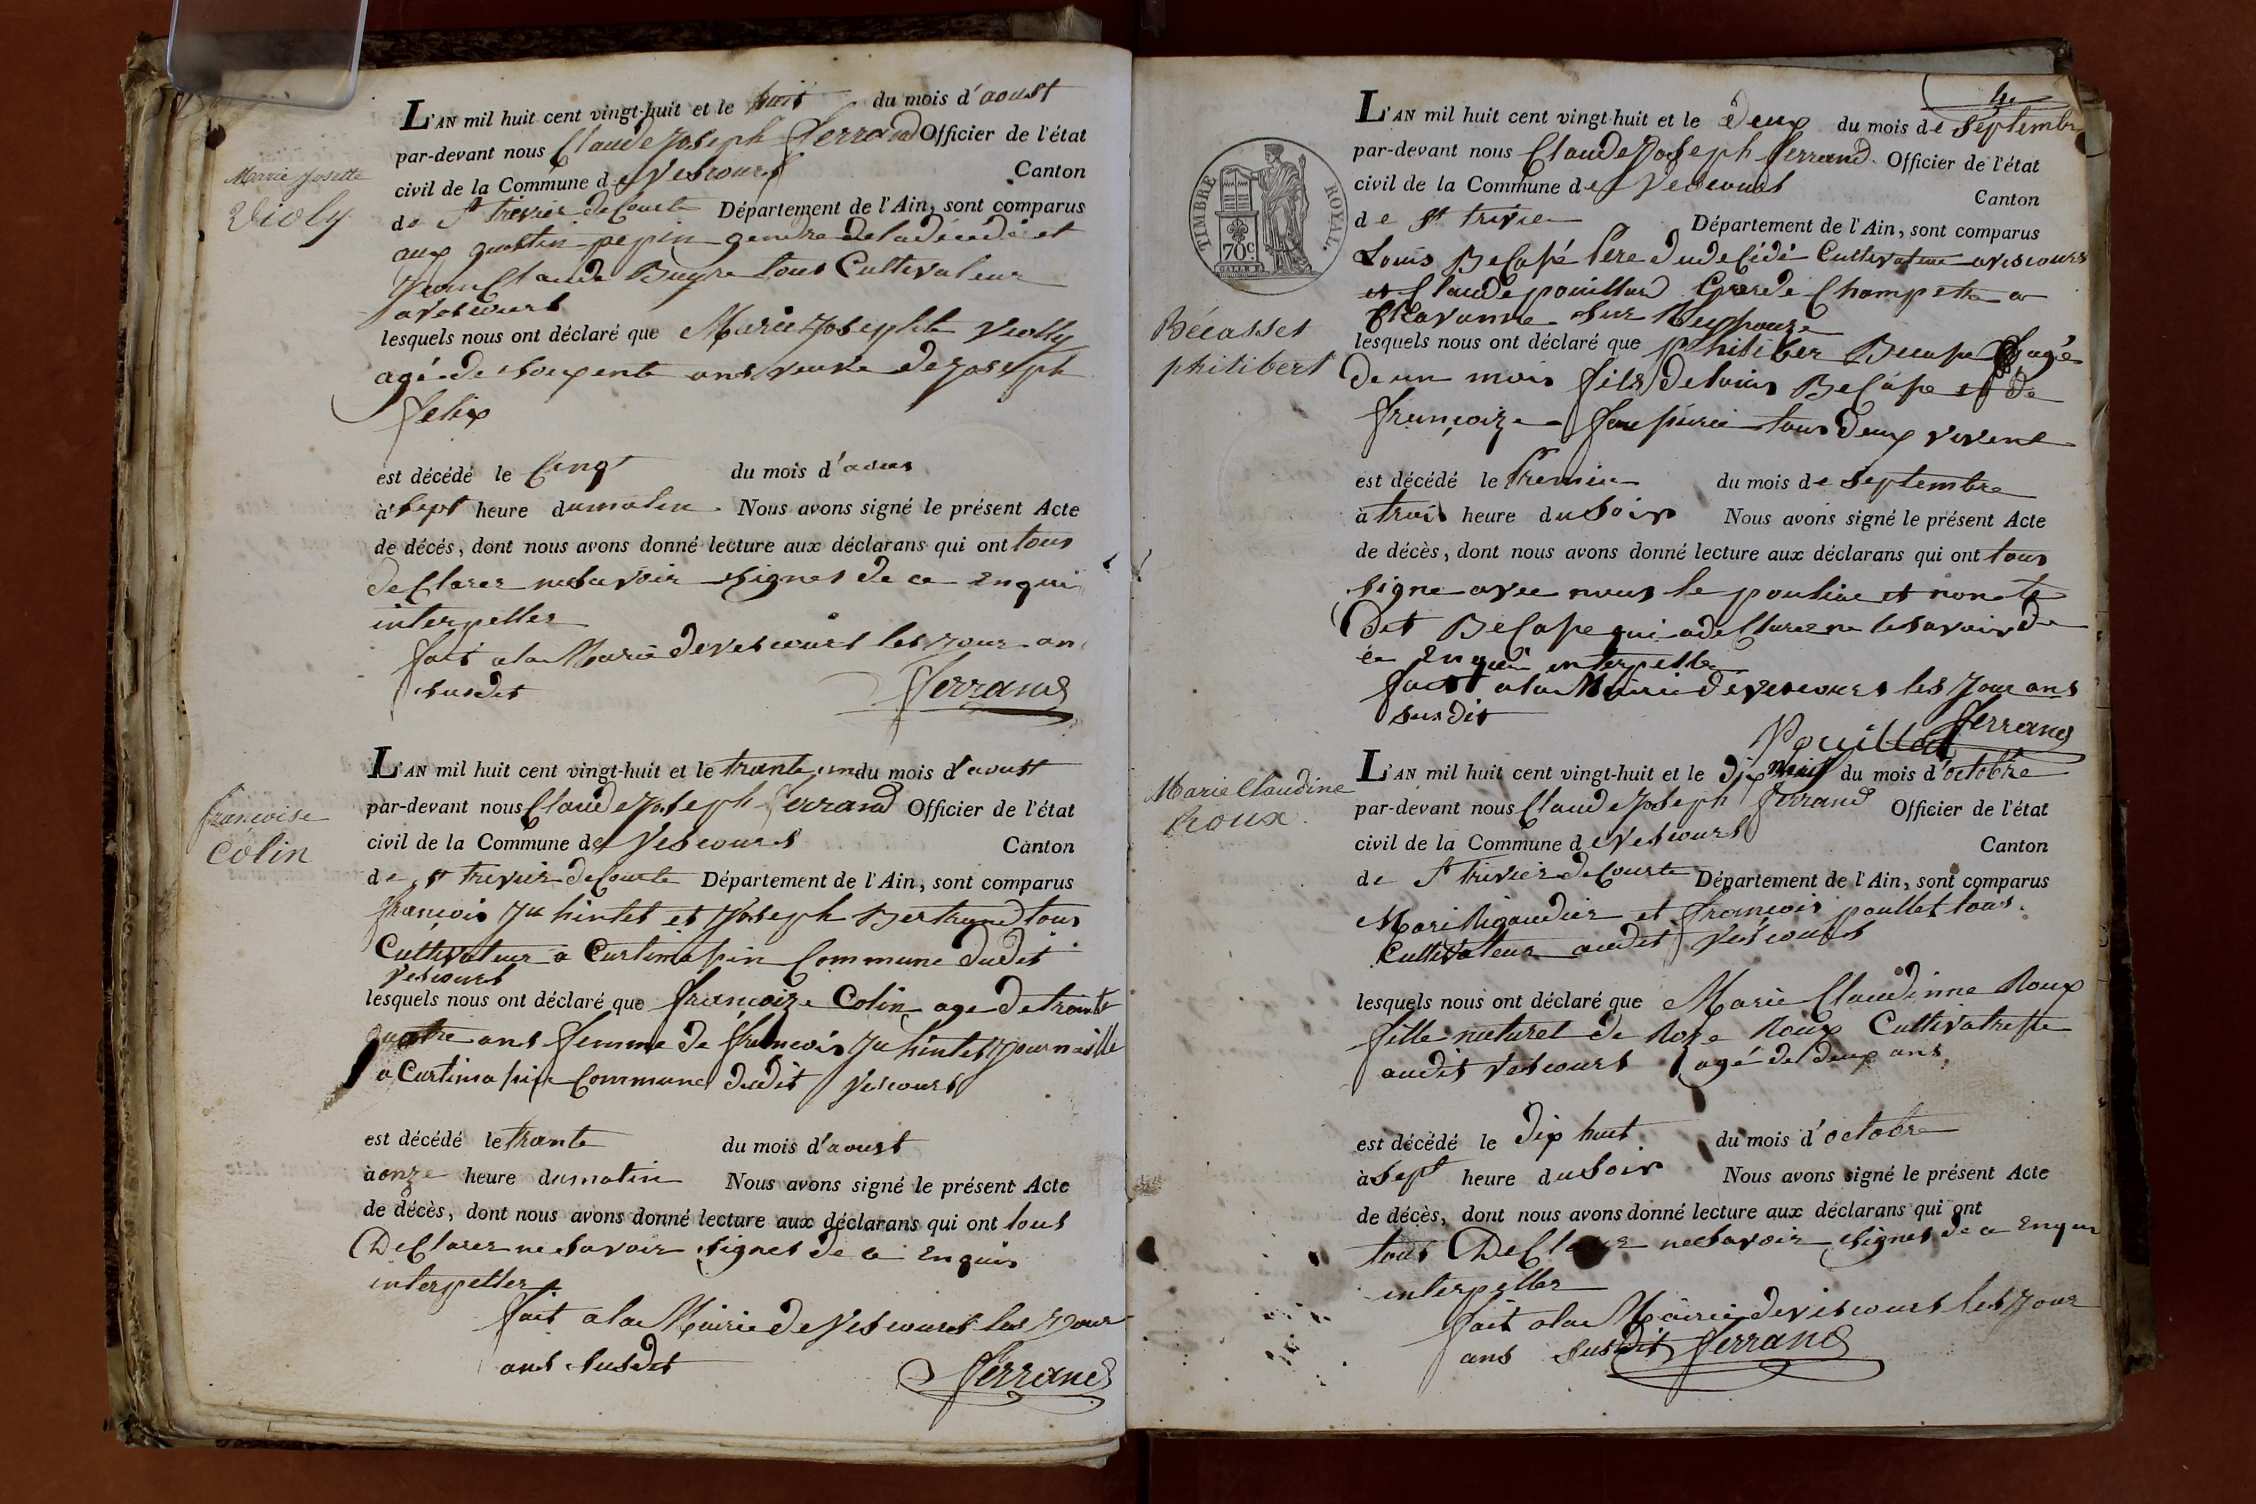 Marie Josette
Violy
L'AN mil huit cent vingt-huit et le huit du mois d'aoust
par-devant nous Claude Joseph ferrand Officier de l'état
civil de la Commune de Vescours Canton
de St trivier de Courte Département de l'Ain, sont comparus
pepin gendre de la décédé et
Jean Claude Buyre tous Cultivateur
a vescours
lesquels nous ont déclaré que Marie Josephte Violly
agé de ans veuve de joseph
felix
est décédé le Cinq du mois d'aous
à sept heure du matin. Nous avons signé le présent Acte
de décés, dont nous avons donné lecture aux déclarans qui ont tous
deClarer ne Savoir Signer de ce Enquis
interpeller
fait a la Mairie de vescours les jour an
susdit
ferrand
françoise
Colin
L'AN mil huit cent vingt-huit et le trante un du mois d'aoust
par-devant nous Claude Joseph ferrand Officier de l'état
civil de la Commune de Vescours Canton
de st trivier de Courte Département de l'Ain, sont comparus
françois et Joseph Bertrand tous
Cultivateur a Curtima Commune dudit
Vescours
lesquels nous ont déclaré que françoize Colin age de trante
quatre ans femme de françois
a Commune dudit Vescours
est décédé le trante du mois d'aoust
à onze heure du matin Nous avons signé le présent Acte
de décès, dont nous avons donné lecture aux déclarans qui ont tous
DeClarer ne Savoir Signer de ce Enquis
interpeller
fait a la Mairie de Vescours les Jour
ans Susdit
ferrand
TIMBRE ROYAL.
70c.
Bécasset
philibert
L'AN mil huit cent vingt-huit et le deux du mois de Septembre
par-devant nous Claude Joseph ferrand Officier de l'état
civil de la Commune de Vescours Canton
de st trivier Département de l'Ain, sont comparus
Louis Pere du deCédé Cultivateur a vescours
et Claude pouillard Garde Champetre a
Chavanne Sur Reyssouze
lesquels nous ont déclaré que philiber agé
de un mois fils de louis et de
françoize tous deux vivent
est décédé le Premier du mois de Septembre
à trois heure du Soir Nous avons signé le présent Acte
de décès, dont nous avons donné lecture aux déclarans qui ont tous
signe avec nous le et non le
dit qui a deClarer ne le savoir de
ce Enquis interpelle
fait a la Mairie de vescours les Jour ans
susdit
Pouillard ferrand
Marie Claudine
Roux.
L'AN mil huit cent vingt-huit et le dix neuf du mois d'octobre
par-devant nous Claude Joseph ferrand Officier de l'état
civil de la Commune de Vescours Canton
de St Trivier de Courte Département de l'Ain, sont comparus
Mari Rigaudier et françois poullet tous
Cultivateur audit Vescours
lesquels nous ont déclaré que Marie Claudinne Roux
fille naturel de Roze Roux Cultivatresse
audit Vescours agé de deux ans
est décédé le dix huit du mois d'octobre
à Sept heure du Soir Nous avons signé le présent Acte
de décès, dont nous avons donné lecture aux déclarans qui ont
tous DeClarer ne Savoir Signer de ce Enquis
interpeller
fait a la Mairie de vescours les Jour
ans Susdit ferrand